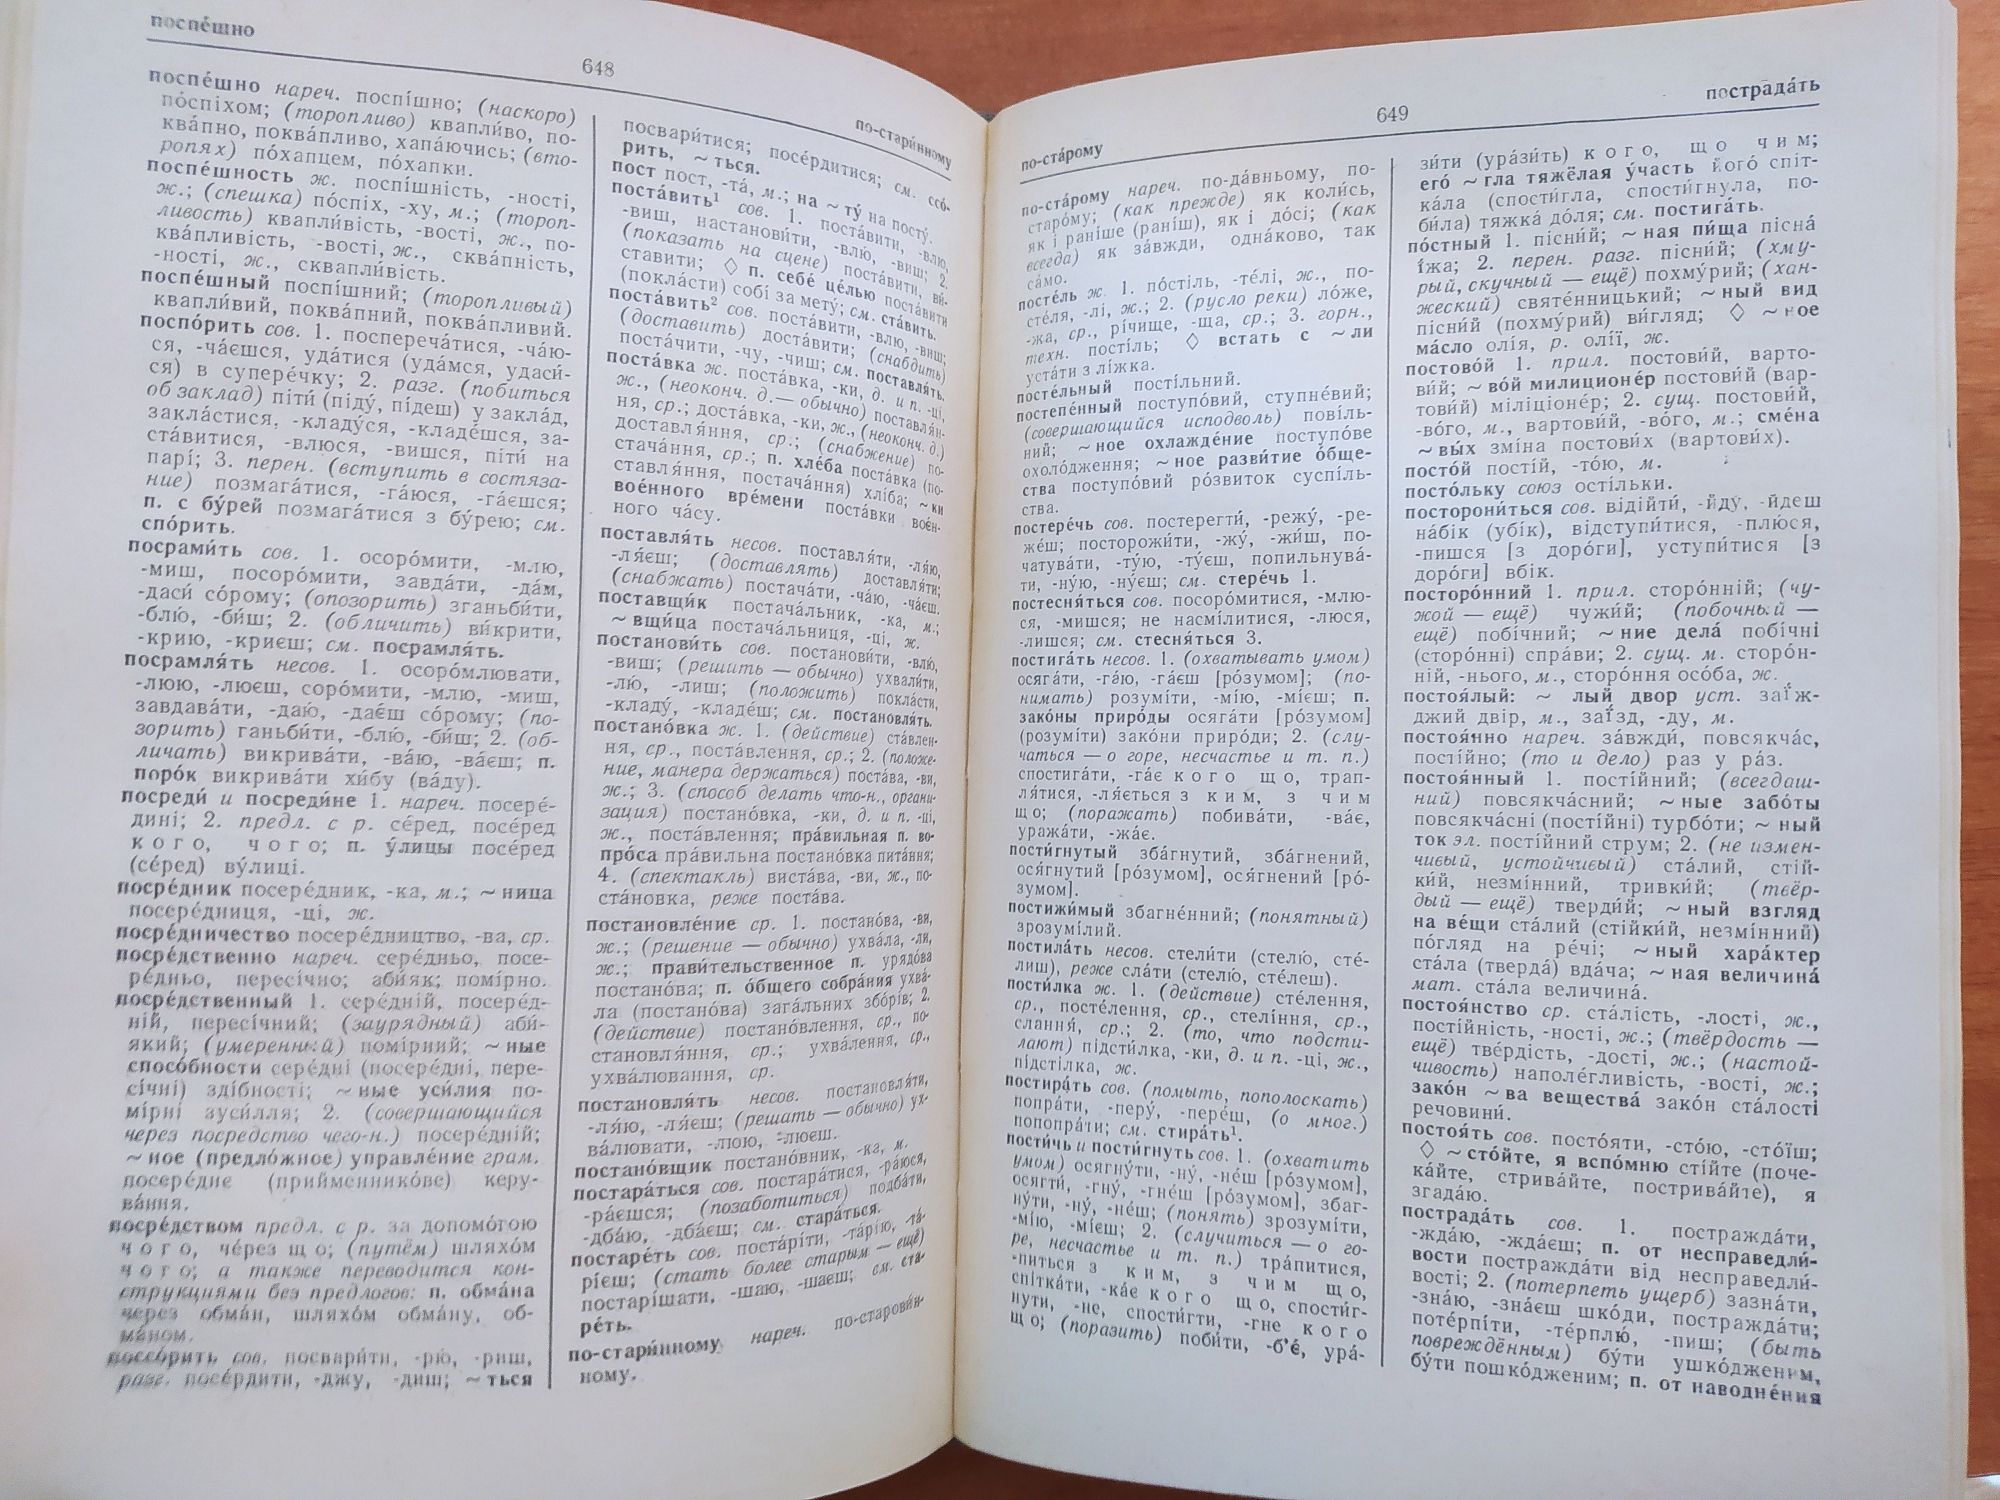 поспе́шно
648
по-стари́нному
поспе́шно нареч. поспі́шно; (наскоро)
по́спіхом; (торопливо) квапли́во, по-
ква́пно, поква́пливо, хапа́ючись; (вто-
ропях) по́хапцем, по́хапки.
поспе́шность ж. поспі́шність, -ності,
ж.; (спешка) по́спіх, -ху, м.; (тороп-
ливость) квапли́вість, -вості, ж., по-
ква́пливість, -вості, ж., сква́пність,
-ності, ж., сквапли́вість.
поспе́шный поспі́шний; (торопливый)
квапли́вий, поква́пний, поква́пливий.
поспо́рить сов. 1. посперeча́тися, -ча́ю-
ся, -ча́єшся, уда́тися (уда́мся, удаси́-
ся) в супере́чку; 2. разг. (побиться
об заклад) піти́ (піду́, пі́деш) у закла́д,
закла́стися, -кладу́ся, -кладе́шся, за-
ста́витися, -влюся, -вишся, піти́ на
парі́; 3. перен. (вступить в состяза-
ние) позмага́тися, -га́юся, -га́єшся;
п. с бу́рей позмага́тися з бу́рею; см.
спо́рить.
посрами́ть сов. 1. осоро́мити, -млю,
-миш, посоро́мити, завда́ти, -да́м,
-даси́ со́рому; (опозорить) зганьби́ти,
-блю́, -би́ш; 2. (обличить) ви́крити,
-крию, -криєш; см. посрамля́ть.
посрамля́ть несов. 1. осоро́млювати,
-люю, -люєш, соро́мити, -млю, -миш,
завдава́ти, -даю́, -дає́ш со́рому; (по-
зорить) ганьби́ти, -блю́, -би́ш; 2. (об-
личать) викрива́ти, -ва́ю, -ва́єш; п.
поро́к викрива́ти хи́бу (ва́ду).
посреди́ и посреди́не 1. нареч. посере́-
дині; 2. предл. с р. се́ред, посе́ред
кого, чого; п. у́лицы посе́ред
(се́ред) ву́лиці.
посре́дник посере́дник, -ка, м.; ~ница
посере́дниця, -ці, ж.
посре́дничество посере́дництво, -ва, ср.
посре́дственно нареч. сере́дньо, посе-
ре́дньо, пересі́чно; аби́як; помі́рно.
посре́дственный 1. сере́дній, посере́д-
ній, пересі́чний; (заурядный) аби́-
який; (умеренный) помі́рний; ~ные
спосо́бности сере́дні (посере́дні, пере-
сі́чні) зді́бності; ~ные уси́лия по-
мі́рні зуси́лля; 2. (совершающийся
через посредство чего-н.) посере́дній;
~ное (предло́жное) управле́ние грам.
посере́днє (прийменнико́ве) керу-
ва́ння.
посре́дством предл. с р. за допомо́гою
чого, че́рез що; (путём) шля́хом
чого; а также переводится кон-
струкциями без предлогов: п. обма́на
че́рез обма́н, шля́хом обма́ну, об-
ма́ном.
поссо́рить сов. посвари́ти, -рю́, -риш,
разг. посе́рдити, -джу, -диш; ~ться
посвари́тися; посе́рдитися; см. ссо́-
рить, ~ться.
пост пост, -та́, м.; на ~ту́ на посту́.
поста́вить¹ сов. 1. поста́вити, -влю,
-виш, настанови́ти, -влю́, -виш; 2.
(показать на сцене) поста́вити, ви́-
ставити; ◇ п. себе́ це́лью поста́вити
(покла́сти) собі́ за мету́; см. ста́вить.
поста́вить² сов. поста́вити, -влю, -виш;
(доставить) доста́вити; (снабдить)
поста́чити, -чу, -чиш; см. поставля́ть.
поста́вка ж. поста́вка, -ки, д. и п. -ці,
ж., (неоконч. д. — обычно) поставля́н-
ня, ср.; доста́вка, -ки, ж., (неоконч. д.)
доставля́ння, ср.; (снабжение) по-
стача́ння, ср.; п. хле́ба поста́вка (по-
ставля́ння, постача́ння) хлі́ба; ~ки
вое́нного вре́мени поста́вки воє́н-
ного ча́су.
поставля́ть несов. поставля́ти, -ля́ю,
-ля́єш; (доставлять) доставля́ти;
(снабжать) постача́ти, -ча́ю, -ча́єш.
поставщи́к постача́льник, -ка, м.;
~вщи́ца постача́льниця, -ці, ж.
постанови́ть сов. постанови́ти, -влю́,
-виш; (решить — обычно) ухвали́ти,
-лю́, -лиш; (положить) покла́сти,
-кладу́, -кладе́ш; см. постановля́ть.
постано́вка ж. 1. (действие) ста́влен-
ня, ср., поста́влення, ср.; 2. (положе-
ние, манера держаться) поста́ва, -ви,
ж.; 3. (способ делать что-н., органи-
зация) постано́вка, -ки, д. и п. -ці,
ж., поста́влення; пра́вильная п. во-
про́са пра́вильна постано́вка пита́ння;
4. (спектакль) виста́ва, -ви, ж., по-
стано́вка, реже поста́ва.
постановле́ние ср. 1. постано́ва, -ви,
ж.; (решение — обычно) ухва́ла, -ли,
ж.; прави́тельственное п. урядо́ва
постано́ва; п. о́бщего собра́ния ухва́-
ла (постано́ва) зага́льних збо́рів; 2.
(действие) постано́влення, ср., по-
становля́ння, ср.; ухва́лення, ср.,
ухва́лювання, ср.
постановля́ть несов. постановля́ти,
-ля́ю, -ля́єш; (решать — обычно) ух-
ва́лювати, -люю, -люєш.
постано́вщик постано́вник, -ка, м.
постара́ться сов. постара́тися, -ра́юся,
-ра́єшся; (позаботиться) подба́ти,
-дба́ю, -дба́єш; см. стара́ться.
постаре́ть сов. поста́ріти, -та́рію, -та́-
рієш; (стать более старым — ещё)
постарі́шати, -шаю, -шаєш; см. ста-
ре́ть.
по-стари́нному нареч. по-старови́н-
ному.
по-ста́рому
649
пострада́ть
по-ста́рому нареч. по-да́вньому, по-
старо́му; (как прежде) як коли́сь,
як і рані́ше (рані́ш), як і до́сі; (как
всегда) як за́вжди, одна́ково, так
са́мо.
посте́ль ж. 1. по́стіль, -те́лі, ж., по-
сте́ля, -лі, ж.; 2. (русло реки) ло́же,
-жа, ср., рі́чище, -ща, ср.; 3. горн.,
техн. по́стіль; ◇ встать с ~ли
уста́ти з лі́жка.
посте́льный пості́льний.
постепе́нный поступо́вий, ступне́вий;
(совершающийся исподволь) пові́ль-
ний; ~ное охлажде́ние поступо́ве
охоло́дження; ~ное разви́тие о́бще-
ства поступо́вий ро́звиток суспі́ль-
ства.
постере́чь сов. постерегти́, -режу́, -ре-
же́ш; посторожи́ти, -жу́, -жи́ш, по-
чатува́ти, -ту́ю, -ту́єш, попильнува́-
ти, -ну́ю, -ну́єш; см. стере́чь 1.
постесня́ться сов. посоро́митися, -млю-
ся, -мишся; не насмі́литися, -люся,
-лишся; см. стесня́ться 3.
постига́ть несов. 1. (охватывать умом)
осяга́ти, -га́ю, -га́єш [ро́зумом]; (по-
нимать) розумі́ти, -мі́ю, -мі́єш; п.
зако́ны приро́ды осяга́ти [ро́зумом]
(розумі́ти) зако́ни приро́ди; 2. (слу-
чаться — о горе, несчастье и т. п.)
спостига́ти, -га́є кого що, трап-
ля́тися, -ля́ється з ким, з чим
що; (поражать) побива́ти, -ва́є,
уража́ти, -жа́є.
пости́гнутый збагну́тий, зба́гнений,
ося́гнутий [ро́зумом], ося́гнений [ро́-
зумом].
постижи́мый збагне́нний; (понятный)
зрозумі́лий.
постила́ть несов. стели́ти (стелю́, сте́-
лиш), реже сла́ти (стелю́, сте́леш).
пости́лка ж. 1. (действие) сте́лення,
ср., посте́лення, ср., стелі́ння, ср.,
слання́, ср.; 2. (то, что подсти-
лают) підсти́лка, -ки, д. и п. -ці, ж.,
підсті́лка, ж.
постира́ть сов. (помыть, пополоскать)
попра́ти, -перу́, -пере́ш, (о мног.)
попопра́ти; см. стира́ть¹.
пости́чь и пости́гнуть сов. 1. (охватить
умом) осягну́ти, -ну́, -не́ш [ро́зумом],
осягти́, -гну́, -гне́ш [ро́зумом], збаг-
ну́ти, -ну́, -не́ш; (понять) зрозумі́ти,
-мі́ю, -мі́єш; 2. (случиться — о го-
ре, несчастье и т. п.) тра́питися,
-питься з ким, з чим що,
спітка́ти, -ка́є кого що, спости́г-
нути, -не, спости́гти, -гне кого
що; (поразить) поби́ти, -б’є́, ура́-
зи́ти (ура́зить) кого, що чим;
его́ ~гла тяжёлая у́часть його́ спіт-
ка́ла (спости́гла, спости́гнула, по-
би́ла) тяжка́ до́ля; см. постига́ть.
по́стный 1. пісни́й; ~ная пи́ща пісна́
ї́жа; 2. перен. разг. пісни́й; (хму-
рый, скучный — ещё) похму́рий; (хан-
жеский) святе́нницький; ~ный вид
пісни́й (похму́рий) ви́гляд; ◇ ~ное
ма́сло олі́я, р. олі́ї, ж.
постово́й 1. прил. постови́й, варто-
ви́й; ~во́й милиционе́р постови́й (вар-
тови́й) міліціоне́р; 2. сущ. постови́й,
-во́го, м., вартови́й, -во́го, м.; сме́на
~вы́х змі́на постови́х (вартови́х).
посто́й пості́й, -то́ю, м.
посто́льку союз ості́льки.
посторони́ться сов. відійти́, -йду́, -йдеш
на́бік (убі́к), відступи́тися, -плю́ся,
-пишся [з доро́ги], уступи́тися [з
доро́ги] вбік.
посторо́нний 1. прил. сторо́нній; (чу-
жой — ещё) чужи́й; (побочный —
ещё) побі́чний; ~ние дела́ побі́чні
(сторо́нні) спра́ви; 2. сущ. м. сторо́н-
ній, -нього, м., сторо́ння осо́ба, ж.
постоя́лый: ~лый двор уст. заї́ж-
джий двір, м., заї́зд, -ду, м.
постоя́нно нареч. за́вжди, повсякча́с,
пості́йно; (то и дело) раз у ра́з.
постоя́нный 1. пості́йний; (всегдаш-
ний) повсякча́сний; ~ные забо́ты
повсякча́сні (пості́йні) турбо́ти; ~ный
ток эл. пості́йний струм; 2. (не измен-
чивый, устойчивый) ста́лий, сті́й-
ки́й, незмі́нний, тривки́й; (твёр-
дый — ещё) тверди́й; ~ный взгляд
на ве́щи ста́лий (стійки́й, незмі́нний)
по́гляд на ре́чі; ~ный хара́ктер
ста́ла (тверда́) вда́ча; ~ная величина́
мат. ста́ла величина́.
постоя́нство ср. ста́лість, -лості, ж.,
пості́йність, -ності, ж.; (твёрдость —
ещё) тве́рдість, -дості, ж.; (настой-
чивость) наполе́гливість, -вості, ж.;
зако́н ~ва вещества́ зако́н ста́лості
речовини́.
постоя́ть сов. посто́яти, -сто́ю, -сто́їш;
◇ ~сто́йте, я вспо́мню сті́йте (поче-
ка́йте, стрива́йте, пострива́йте), я
згада́ю.
пострада́ть сов. 1. постражда́ти,
-жда́ю, -жда́єш; п. от несправедли́-
вости постражда́ти від несправедли́-
вості; 2. (потерпеть ущерб) зазна́ти,
-зна́ю, -зна́єш шко́ди, постражда́ти;
поте́рпіти, -те́рплю, -пиш; (быть
повреждённым) бу́ти ушко́дженим,
бу́ти пошко́дженим; п. от наводне́ния